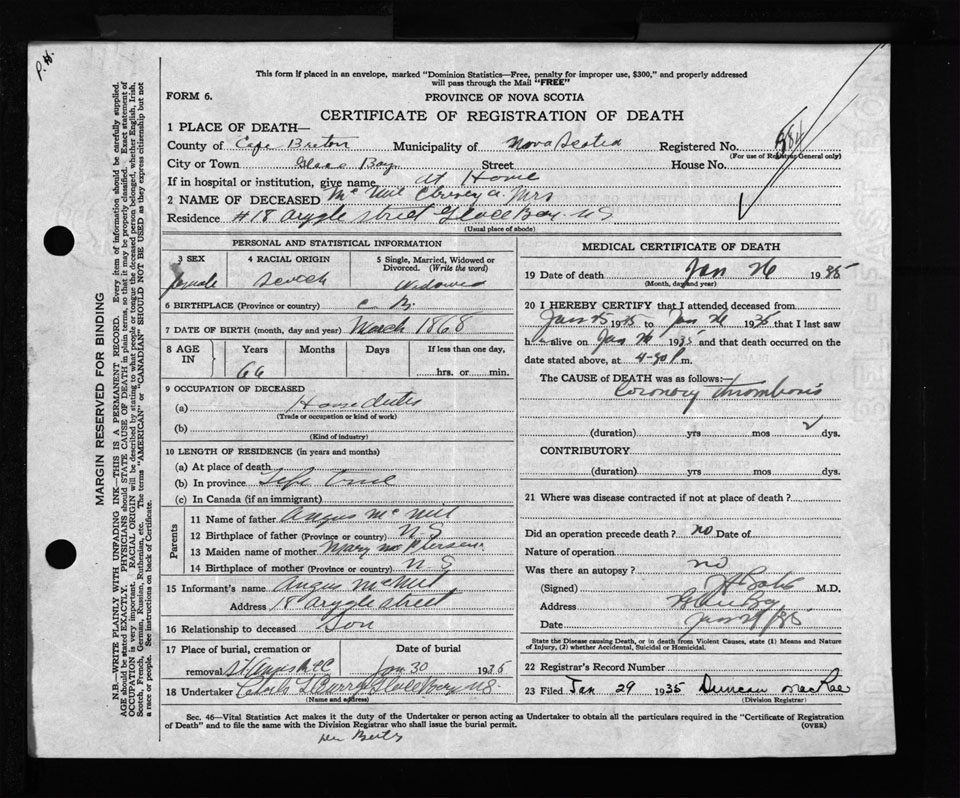 P.H.
This form if placed in an envelope, marked "Dominion Statistics—Free, penalty for improper use, $300," and properly addressed
will pass through the Mail "FREE"
FORM 6.
PROVINCE OF NOVA SCOTIA
CERTIFICATE OF REGISTRATION OF DEATH
1 PLACE OF DEATH—
County of Cape Breton Municipality of Nova Scotia Registered No.
(For use of Registrar General only)
City or Town Glace Bay Street House No.
If in hospital or institution, give name At Home
2 NAME OF DECEASED Mc Neil Mrs
Residence #18 Argyle Street Glace Bay NS
(Usual place of abode)
PERSONAL AND STATISTICAL INFORMATION
3 SEX 4 RACIAL ORIGIN 5 Single, Married, Widowed or Divorced. (Write the word)
female Scotch Widowed
6 BIRTHPLACE (Province or country) C B.
7 DATE OF BIRTH (month, day and year) March 1868
8 AGE IN Years Months Days If less than one day,
66 hrs. or min.
9 OCCUPATION OF DECEASED
(a) House duties
(Trade or occupation or kind of work)
(b)
(Kind of industry)
10 LENGTH OF RESIDENCE (in years and months)
(a) At place of death
(b) In province Life time
(c) In Canada (if an immigrant)
Parents
11 Name of father Angus Mc Neil
12 Birthplace of father (Province or country) N S
13 Maiden name of mother Mary
14 Birthplace of mother (Province or country) N S
15 Informant's name Angus McNeil
Address 18 Argyle Street
16 Relationship to deceased Son
17 Place of burial, cremation or Date of burial
removal Jan 30 19
18 Undertaker Glace Bay NS
(Name and address)
MEDICAL CERTIFICATE OF DEATH
19 Date of death Jan 26 1935
(Month, day and year)
20 I HEREBY CERTIFY that I attended deceased from
Jan 25 1935 to Jan 26 1935 that I last saw
her alive on Jan 26 1935 and that death occurred on the
date stated above, at 4-30 P.m.
The CAUSE of DEATH was as follows:—
Coronary Thrombosis
(duration) yrs mos 2 dys.
CONTRIBUTORY
(duration) yrs mos dys.
21 Where was disease contracted if not at place of death?
Did an operation precede death? no Date of
Nature of operation
Was there an autopsy? no
(Signed) M.D.
Address Glace Bay
Date
State the Disease causing Death, or in death from Violent Causes, state (1) Means and Nature
of Injury, (2) whether Accidental, Suicidal or Homicidal.
22 Registrar's Record Number
23 Filed Jan 29 1935 Duncan MacRae
(Division Registrar)
Sec. 46—Vital Statistics Act makes it the duty of the Undertaker or person acting as Undertaker to obtain all the particulars required in the "Certificate of Registration
of Death" and to file the same with the Division Registrar who shall issue the burial permit. (OVER)
MARGIN RESERVED FOR BINDING
N.B.—WRITE PLAINLY WITH UNFADING INK—THIS IS A PERMANENT RECORD. Every item of information should be carefully supplied.
AGE should be stated EXACTLY. PHYSICIANS should STATE CAUSE OF DEATH in plain terms, so that it may be properly classified. Exact statement of
OCCUPATION is very important. RACIAL ORIGIN will be described by stating to what people or tongue the deceased person belonged, whether English, Irish,
Scotch, French, German, Russian, Ruthenian, etc. The terms "AMERICAN" or "CANADIAN" SHOULD NOT BE USED as they express citizenship but not
a race or people. See instructions on back of Certificate.